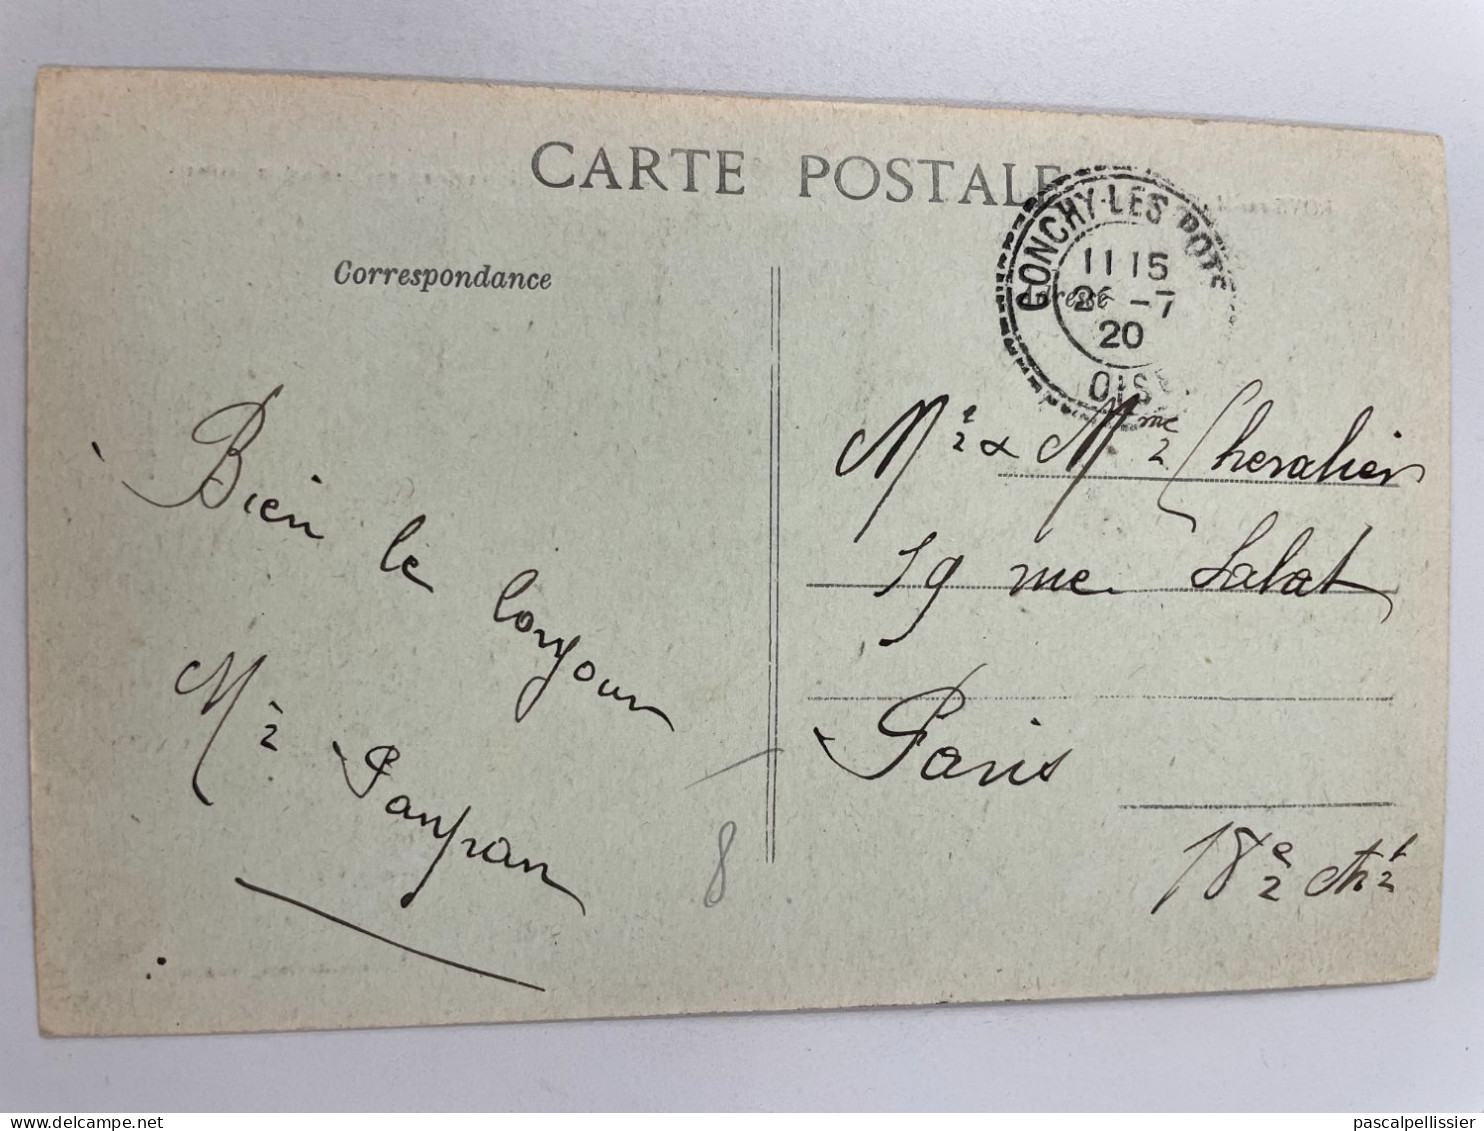 CARTE POSTALE
Correspondance
Adresse
CONCHY-LES-POTS
11 15
26 -7
20
OISE
Bien le bonjour
Mr
Mr & Mme Chevalier
19 rue Labat
Paris
18e Art
8
pascalpellissier